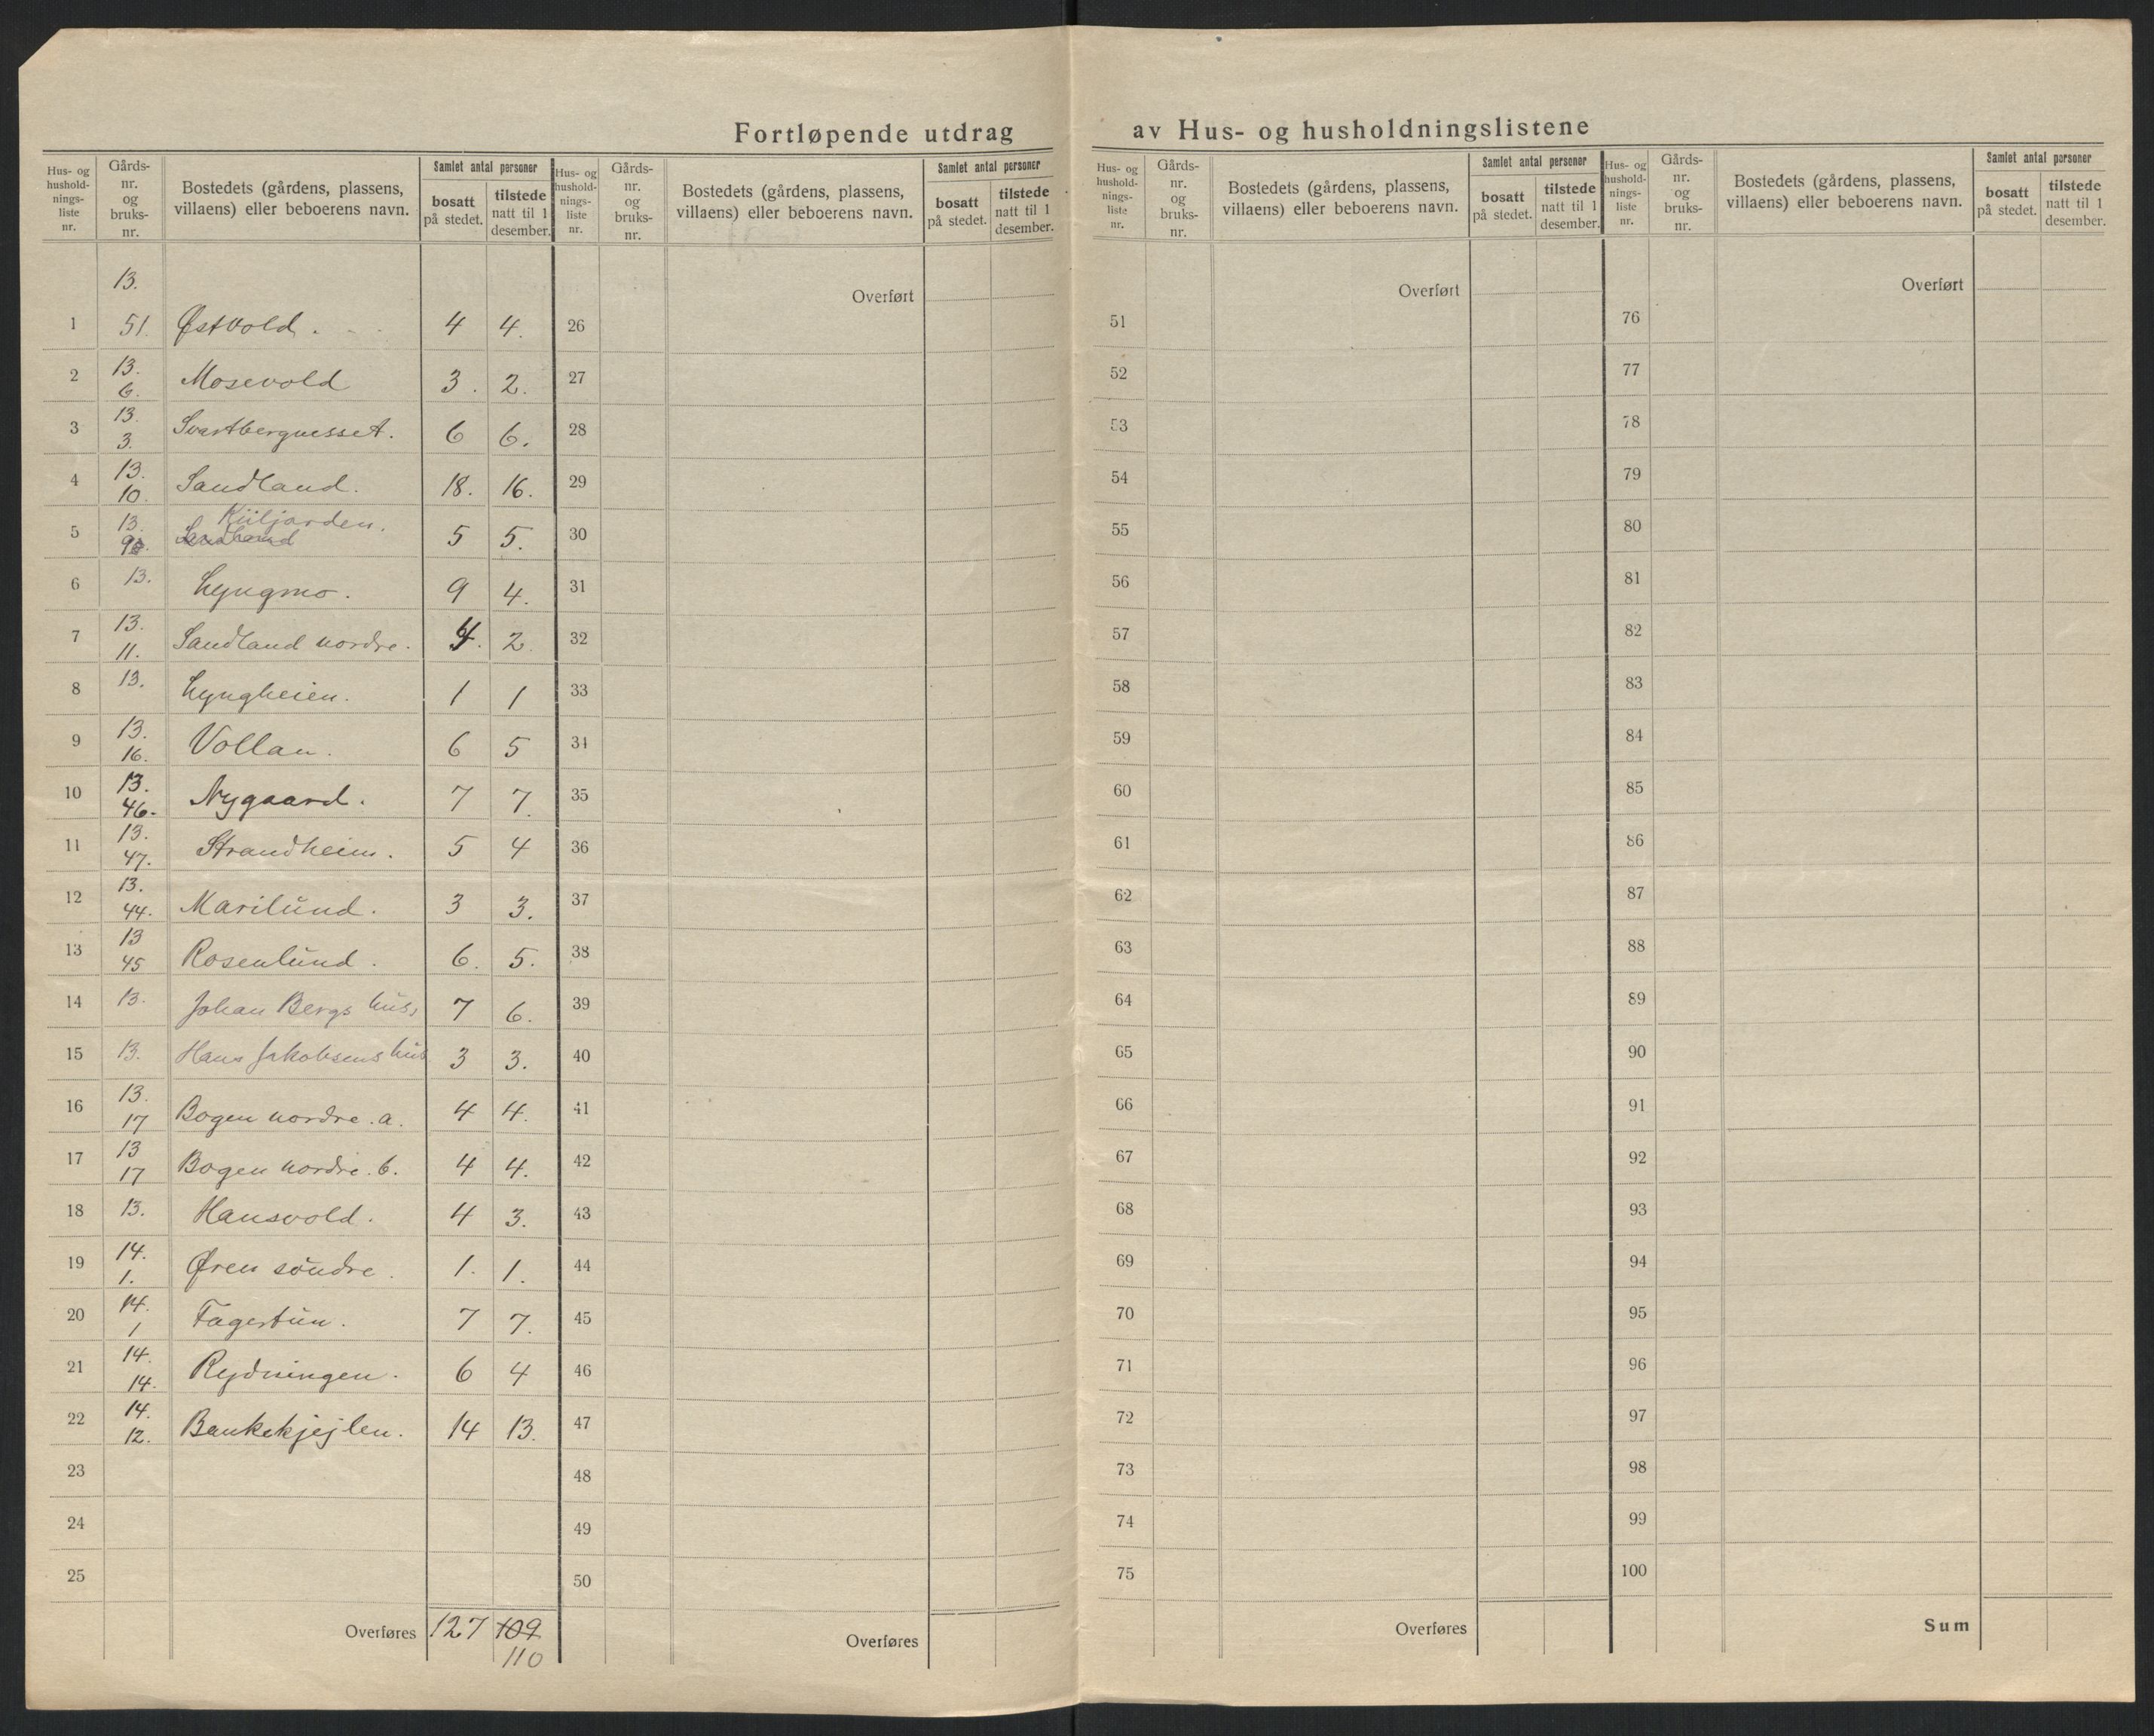 Fortløpende utdrag av Hus- og husholdningslistene
Hus- og hushold-nings-liste nr. | Gårds-nr. og bruks-nr. | Bostedets (gårdens, plassens, villaens) eller beboerens navn. | Samlet antal personer | bosatt på stedet. | tilstede natt til 1 desember.
Hus- og hushold-nings-liste nr. | Gårds-nr. og bruks-nr. | Bostedets (gårdens, plassens, villaens) eller beboerens navn. | Samlet antal personer | bosatt på stedet. | tilstede natt til 1 desember.
Hus- og hushold-nings-liste nr. | Gårds-nr. og bruks-nr. | Bostedets (gårdens, plassens, villaens) eller beboerens navn. | Samlet antal personer | bosatt på stedet. | tilstede natt til 1 desember.
Hus- og hushold-nings-liste nr. | Gårds-nr. og bruks-nr. | Bostedets (gårdens, plassens, villaens) eller beboerens navn. | Samlet antal personer | bosatt på stedet. | tilstede natt til 1 desember.
1 13. 51. Østvold. 4 4.
2 13. 6. Mosevold 3. 2.
3 13. 3. Svartbergnesset. 6 6.
4 13. 10. Sandland. 18. 16.
5 13. 9. Sandland 5 5.
6 13. Lyngmo. 9 4.
7 13. 11. Sandland nordre. 4. 2.
8 13. Lyngheien. 1 1
9 13. 16. Vollan. 6 5
10 13. 46. Nygaard. 7 7.
11 13. 47. Strandheim. 5 4
12 13. 44. Marilund. 3 3.
13 13 45 Rosenlund. 6. 5.
14 13. Johan Bergs hus, 7 6.
15 13. Hans Jakobsens hus 3 3.
16 13. 17 Bogen nordre. a. 4 4.
17 13 17 Bogen nordre. b. 4 4.
18 13. Hansvold. 4 3.
19 14. 1. Øren søndre. 1. 1.
20 14. 1 Fagertun. 7 7.
21 14. 14. Rydningen. 6 4
22 14. 12. Bankekjejlen. 14 13.
23
24
25
Overføres 127 109
110
Overført
26
27
28
29
30
31
32
33
34
35
36
37
38
39
40
41
42
43
44
45
46
47
48
49
50
Overføres
Overført
51
52
53
54
55
56
57
58
59
60
61
62
63
64
65
66
67
68
69
70
71
72
73
74
75
Overføres
Overført
76
77
78
79
80
81
82
83
84
85
86
87
88
89
90
91
92
93
94
95
96
97
98
99
100
Sum